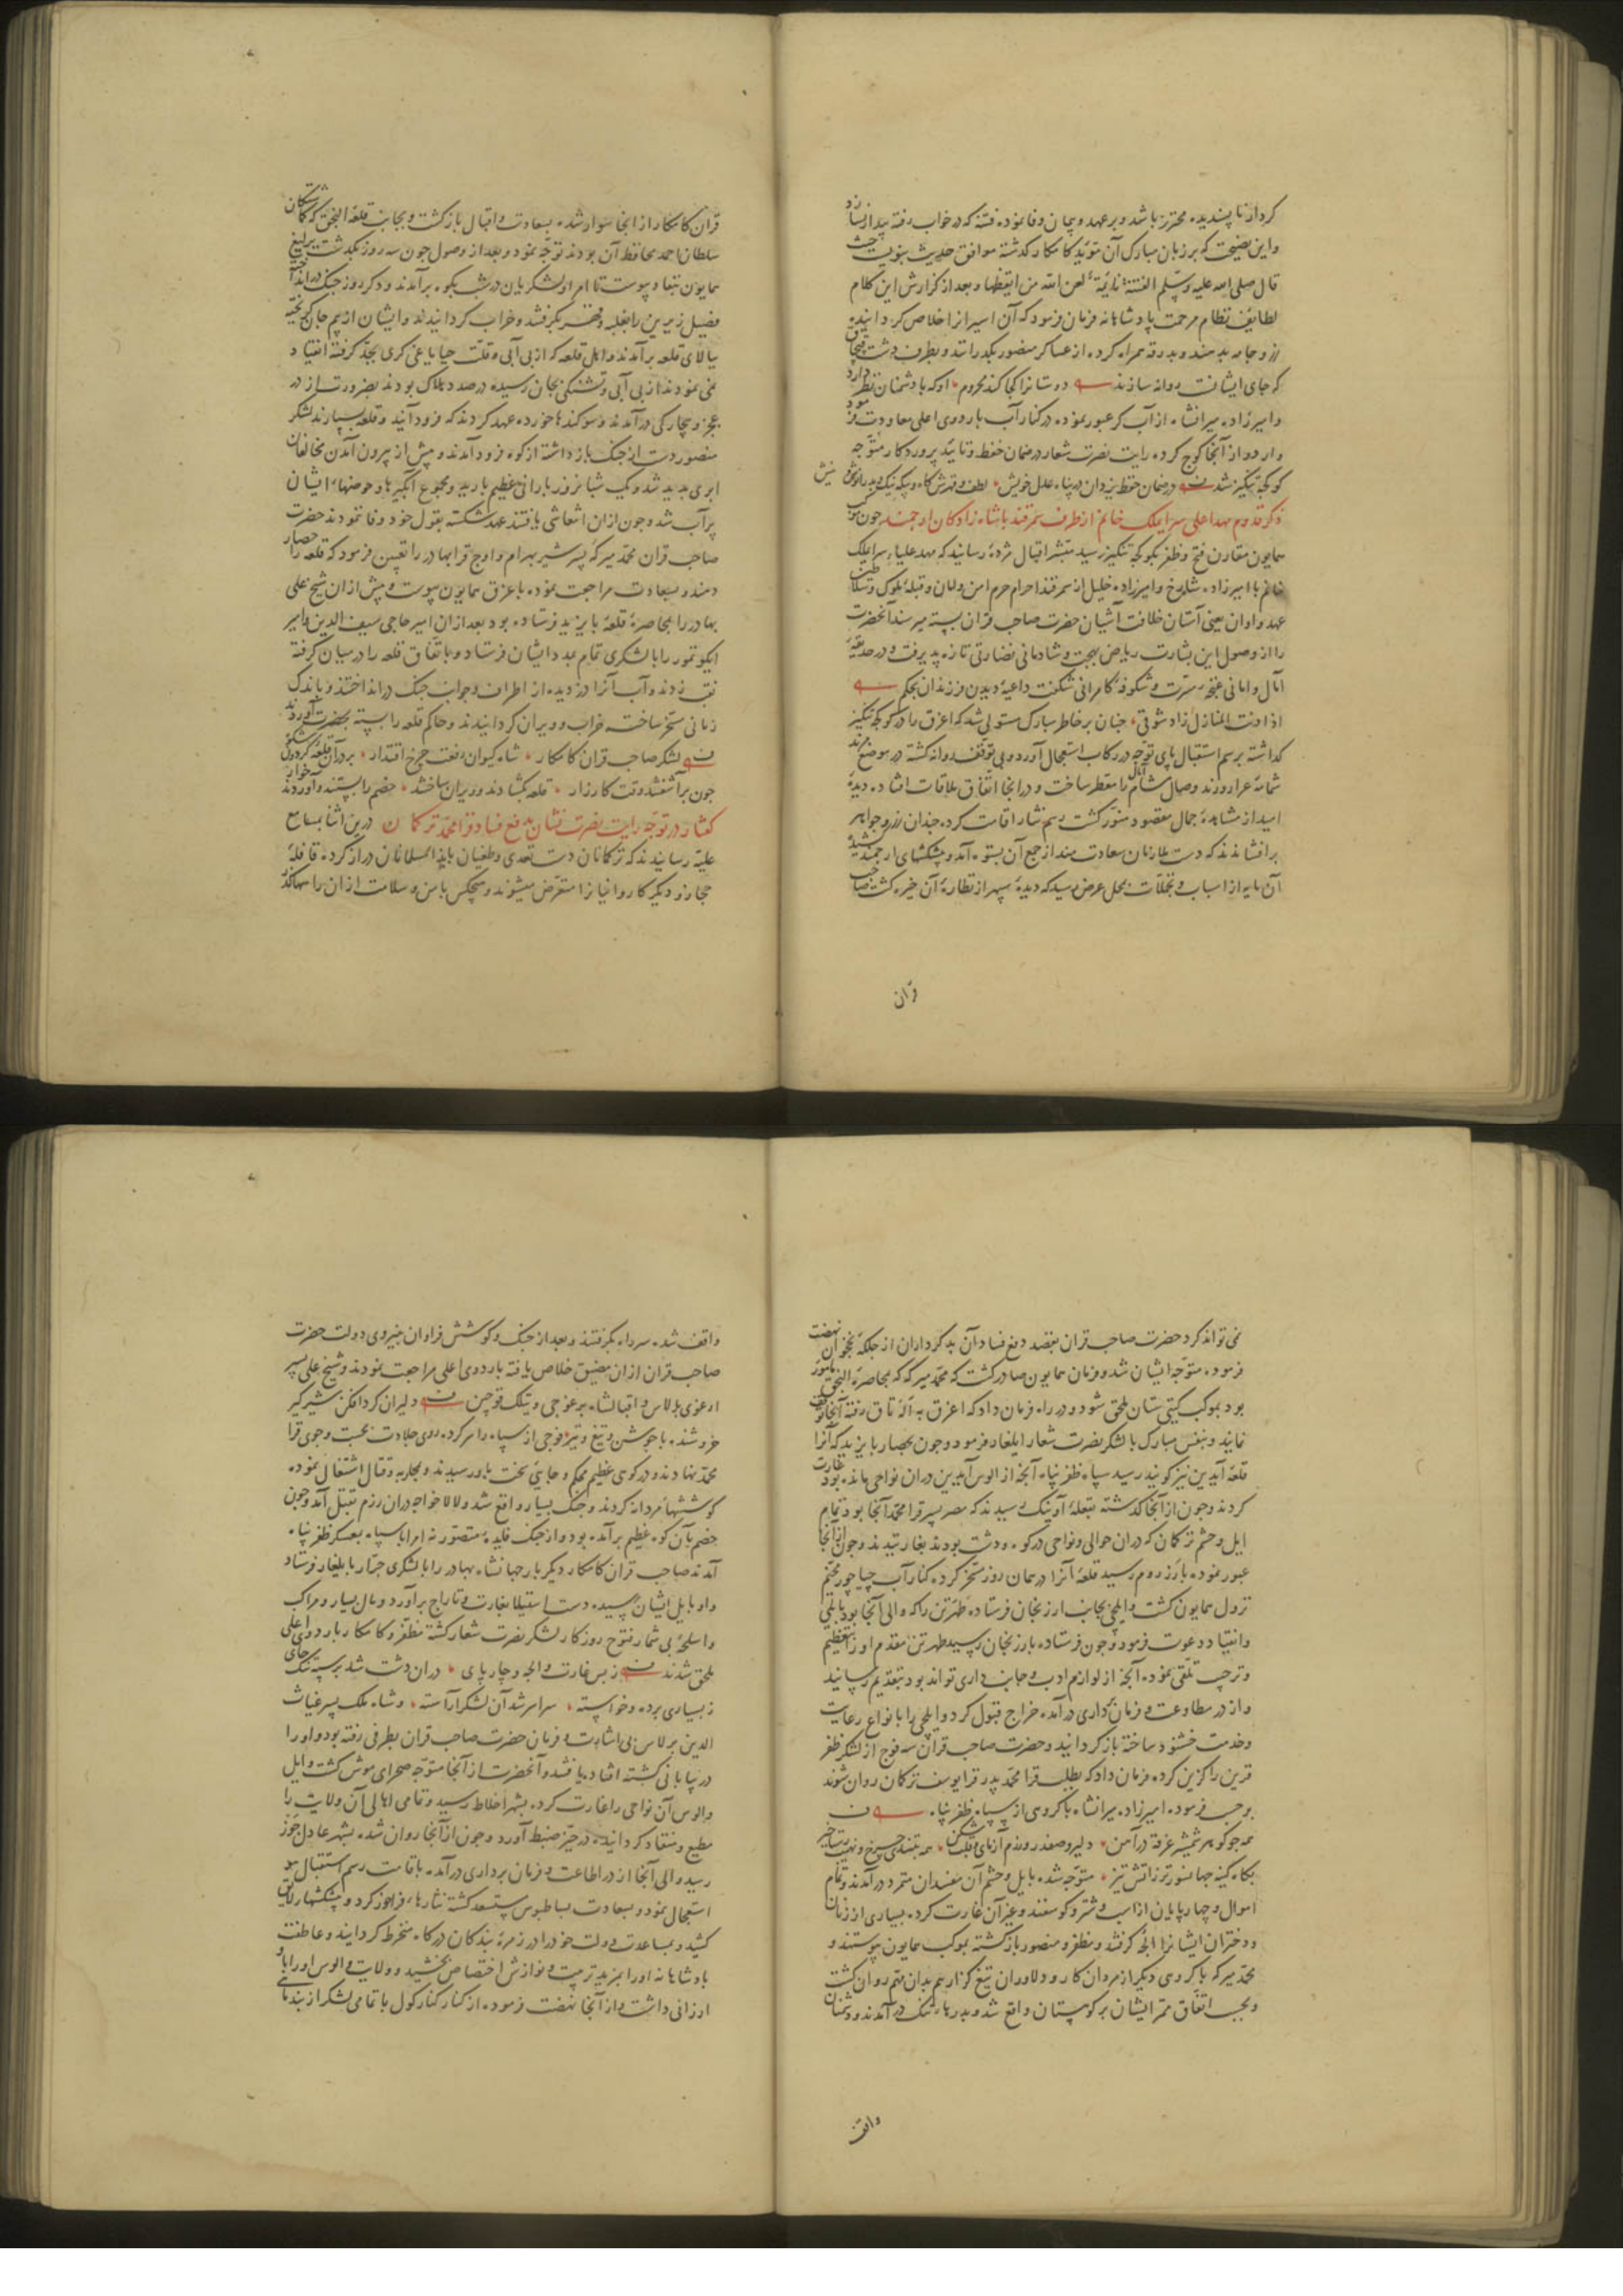 کردار ناپسندیده محترز باشد و بر عهد و پیمان وفا نموده فتنه که در خواب رفته بیدار نسازد
و این نصیحت که بر زبان مبارک آن مؤید کامکار گذشته موافق حدیث نبویست حیث
قال صلی الله علیه وسلم الفتنة نایمة لعن الله من ایقظها و بعد از گزارش این کلام
لطایف نظام مرحمت پادشاهانه فرمان فرمود که آن اسیرانرا خلاص گردانیده
زر و جامه بدهند و بدرقه همراه کرده از عساکر منصور بگذرانند و بطرف دشت قپچاق
که جای ایشانست روانه سازند دوستانرا کجا کند محروم او که با دشمنان نظر دارد
و امیرزاده میرانشاه از آب کر عبور نموده در کنار آب باردوی اعلی معاودت فرمود
و اردو از آنجا کوچ کرده رایت نصرت شعار در ضمان حفظ و تأیید پروردگار متوجه
کوکچه تنگیز شد در ضمان حفظ یزدان در پناه عدل خویش
ذکر قدوم مهد اعلی سرایملک خانم از طرف سمرقند با شاه زادگان ارجمند چون موکب
همایون مقارن فتح و ظفر بکوکچه تنگیز رسید مبشر اقبال مژده رسانید که مهد علیا سرایملک
خانم با امیرزاده شاهرخ و امیرزاده خلیل از سمرقند احرام حرم امن و امان و قبله ملوک و سلاطین
عهد و اوان یعنی آستان خلافت آشیان حضرت صاحب قران بسته میرسند آنحضرت
را از وصول این بشارت ریاض بهجت و شادمانی نضارتی تازه پذیرفت و در حدیقه
آمال و امانی غنچه مسرت و شکوفه کامرانی شکفت داعیه دیدن فرزندان بحکم
اذا دنت المنازل زاد شوقی چنان بر خاطر مبارک مستولی شد که اغرق را در کوکچه تنگیز
گذاشته برسم استقبال پای توجه در رکاب استعجال آورد و بی توقف روانه گشته در موضع
شمامه عرار روزند وصال مشام آمال را معطر ساخت و در آنجا اتفاق ملاقات افتاد دیده
امید از مشاهده جمال مقصود منور گشت رسم نثار اقامت کرده چندان زر و جواهر
برافشاندند که دست ملازمان سعادت مند از جمع آن بستوه آمد و پیشکشهای ارجمند کشیده
آن مایه از اسباب و تجملات بمحل عرض رسید که دیده سپهر از نظاره آن خیره گشت صاحب
قران
قران کامکار از آنجا سوار شده بسعادت و اقبال بازگشت و بجانب قلعه النجق که گماشتگان
سلطان احمد محافظ آن بودند توجه نمود و بعد از وصول چون سه روز بگذشت یرلیغ
همایون بنفاذ پیوست تا امرا و لشکریان در شب بکوه برآمدند و دگر روز جنگ درانداخته
فصیل زیرین را بغلبه و قهر بگرفتند و خراب گردانیدند و ایشان از بیم جان گریخته
ببالای قلعه برآمدند و اهل قلعه که از بی آبی و قلت حیا یاغی گری بجد گرفته انقیاد
نمی نمودند از بی آبی و تشنگی بجان رسیده در صدد هلاک بودند بضرورت از در
عجز و بیچارگی درآمدند و سوگندها خورده عهد کردند که فرود آیند و قلعه بسپارند لشکر
منصور دست از جنگ بازداشته از کوه فرود آمدند و پیش از بیرون آمدن مخالفان
ابری پدید شد و یک شبانروز بارانی عظیم بارید و مجموع آبگیرها و حوضهاء ایشان
پرآب شد و چون ازان انتعاشی یافتند عهد شکسته بقول خود وفا ننمودند حضرت
صاحب قران محمد میرکه پسر شیر بهرام و اوچ قرابهادر را تعیین فرمود که قلعه را حصار
دهند و بسعادت مراجعت نموده باغرق همایون پیوست و پیش ازان شیخ علی
بهادر را بمحاصره قلعه بایزید فرستاده بود بعد ازان امیر حاجی سیف الدین و امیر
ایکو تمور را با لشکری تمام بمدد ایشان فرستاد و باتفاق قلعه را در میان گرفته
نقب زدند و آب آنرا دزدیده از اطراف و جوانب جنگ درانداختند و باندک
زمانی مسخر ساخته خراب و ویران گردانیدند و حاکم قلعه را بسته بحضرت آوردند
لشکر صاحب قران کامکار شاه کیوان رفعت چرخ اقتدار بر در آن قلعه گردون شکوه
چون برآشفتند وقت کارزار قلعه بگشادند و ویران ساختند خصم را بستند و آوردند خوار
گفتار در توجه رایت نصرت نشان بدفع فساد قرا محمد ترکمان درین اثنا بمسامع
علیه رسانیدند که ترکمانان دست تعدی و طغیان بایذاء مسلمانان دراز کرده قافله
حجاز و دیگر کاروانیانرا متعرض میشوند و هیچکس بامن و سلامت ازان راهها گذر
نمی تواند کرد حضرت صاحب قران بقصد دفع فساد آن بدکرداران از جلگه نخجوان نهضت
فرموده متوجه ایشان شد و فرمان همایون صادر گشت که محمد میرکه که بمحاصره النجق مامور
بود بموکب گیتی ستان ملحق شود و در راه فرمان داد که اغرق به آله تاق رفته آنجا توقف
نمایند و بنفس مبارک با لشکر نصرت شعار ایلغار فرمود و چون بحصار بایزید که آنرا
قلعه آیدین نیز گویند رسید سپاه ظفر پناه آنچه از الوس آیدین دران نواحی مانده بود غارت
کردند و چون از آنجا گذشته بقلعه اونیک رسیدند که مصر پسر قرا محمد آنجا بود تمام
ایل و حشم ترکمان که دران حوالی و نواحی در کوه و دشت بودند بغارتیدند و چون از آنجا
عبور نموده بارز روم رسید قلعه آنرا در همان روز مسخر کرده کنار آب چپاچور مخیم
نزول همایون گشت و ایلچی بجانب ارزنجان فرستاده طهرتن را که والی آنجا بود بایلی
و انقیاد دعوت فرمود و چون فرستاده بارزنجان رسید طهرتن مقدم او را بتعظیم
و ترحیب تلقی نموده آنچه از لوازم ادب و جانب داری تواند بود بتقدیم رسانید
و از در مطاوعت و فرمان گذاری درآمده خراج قبول کرد و ایلچی را بانواع رعایت
و خدمت خشنود ساخته بازگردانید و حضرت صاحب قران سه فوج از لشکر ظفر
قرین را گزین کرده فرمان داد که بطلب قرا محمد پدر قرا یوسف ترکمان روان شوند
بموجب فرموده امیرزاده میرانشاه با گروهی از سپاه ظفر پناه
همه چو گوهر شمشیر غرقه در آهن دلیر و صفدر و رزم آزمای و قلب شکن
بگاه کینه جهانسوزتر ز آتش تیز متوجه شده بایل و حشم آن مفسدان متمرد درآمدند و تمام
اموال و چهارپایان از اسب و شتر و گوسفند و غیر آن غارت کرده بسیاری از زنان
و دختران ایشانرا الجه گرفتند و مظفر و منصور بازگشته بموکب همایون پیوستند و
محمد میرکه با گروهی دیگر از مردان کار و دلاوران تیغ گزار هم بدان مهم روان گشت
و بحسب اتفاق ممر ایشان بر کوهستان واقع شد و بدرهاء تنگ درآمدند و دشمنان
واقف
واقف شده سر راه بگرفتند و بعد از جنگ و کوشش فراوان بنیروی دولت حضرت
صاحب قران ازان مضیق خلاص یافته باردوی اعلی مراجعت نمودند و شیخ علی پسر
ارغوی برلاس و اقبالشاه برغوجی و بیتکک قوچین دلیران گرد افکن شیرگیر
خروشنده با جوشن و تیغ و تیر فوجی از سپاه را سر کرده روی جلادت بجست و جوی قرا
محمد نهادند و در کوهی عظیم محکم و جایی سخت باو رسیدند و بمحاربه و قتال اشتغال نموده
کوششهاء مردانه کردند و جنگ بسیار واقع شد و لالا خواجه دران رزم بقتل آمد و چون
خصم بآن کوه عظیم برآمده بود و از جنگ فایده متصور نه امرا با سپاه بعسکر ظفر پناه
آمدند صاحب قران کامکار دیگر بار جهانشاه بهادر را با لشکری جرار بایلغار فرستاد
و او بایل ایشان رسیده دست استیلا بغارت و تاراج برآورد و مال بسیار و مراکب
و اسلحه بی شمار فتوح روزگار لشکر نصرت شعار گشته مظفر و کامکار باردوی اعلی
ملحق شدند ز بس غارت و الجه و چارپای دران دشت شد بر سپه تنگ جای
ز بسیاری برده و خواسته سراسر شد آن لشکر آراسته و شاه ملک پسر غیاث
الدین برلاس بی اشارت و فرمان حضرت صاحب قران بطرفی رفته بود و او را
در بیابانی کشته افتاده یافتند و آنحضرت از آنجا متوجه صحرای موش گشت و ایل
و الوس آن نواحی را غارت کرده بشهر اخلاط رسید و تمامی اهالی آن ولایت را
مطیع و منقاد گردانیده در حیز ضبط آورد و چون از آنجا روان شده بشهر عادل جوز
رسید والی آنجا از در اطاعت و فرمان برداری درآمده باقامت رسم استقبال
استعجال نمود و بسعادت بساطبوس مستسعد گشته نثارهاء فراخور کرد و پیشکشهاء لایق
کشید و بمساعدت دولت خود را در زمره بندگان درگاه منخرط گردانید و عاطفت
پادشاهانه او را بمزید تربیت و نوازش اختصاص بخشید و ولایت و الوس او را باو
ارزانی داشت و از آنجا نهضت فرموده از کنار کنار کول با تمامی لشکر از بند ماهی